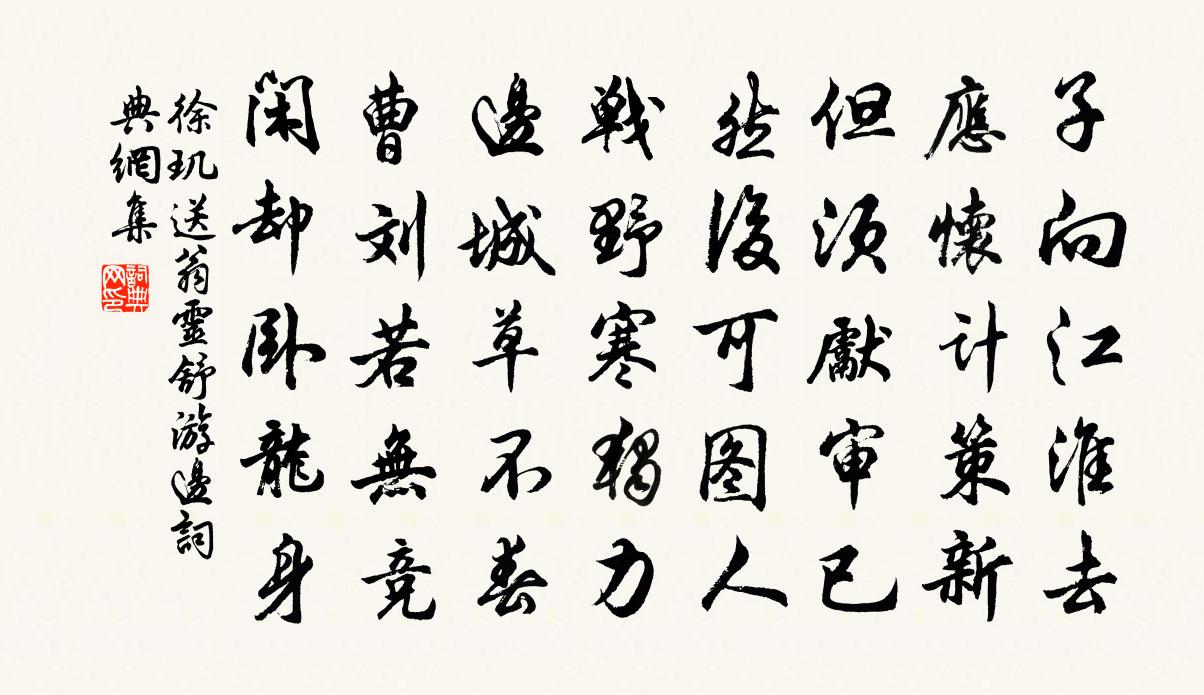 子向江淮去
應懷计策新
但须獻审己
然後可图人
戦野寒獨力
邊城草不春
曹刘若無竞
閑却卧龍身
徐玑送翁靈舒游邊詞
典網集
詞典
网印